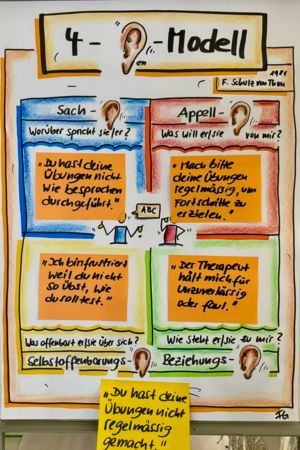 4-Ohren-Modell
1981
F. Schulz von Thun
Sach-
Worüber spricht sie/er?
„Du hast deine
Übungen nicht
wie besprochen
durchgeführt."
Appell-
Was will er/sie von mir?
„Mach bitte
deine Übungen
regelmässig, um
Fortschritte zu
erzielen."
ABC
„Ich bin frustriert
weil du nicht
so übst, wie
du solltest."
Was offenbart er/sie über sich?
Selbstoffenbarungs-
„Der Therapeut
hält mich für
unzuverlässig
oder faul."
Wie steht er/sie zu mir?
Beziehungs-
„Du hast deine
Übungen nicht
regelmässig
gemacht."